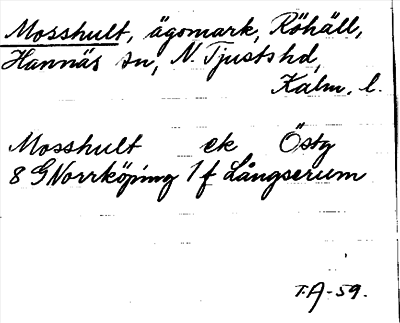 Mosshult, ägomark, Röhäll,
Hannäs sn, N. Tjusts hd,
Kalm. l.
Mosshult ek Östg
8 G Norrköping 1 f Långserum
T.A-59.